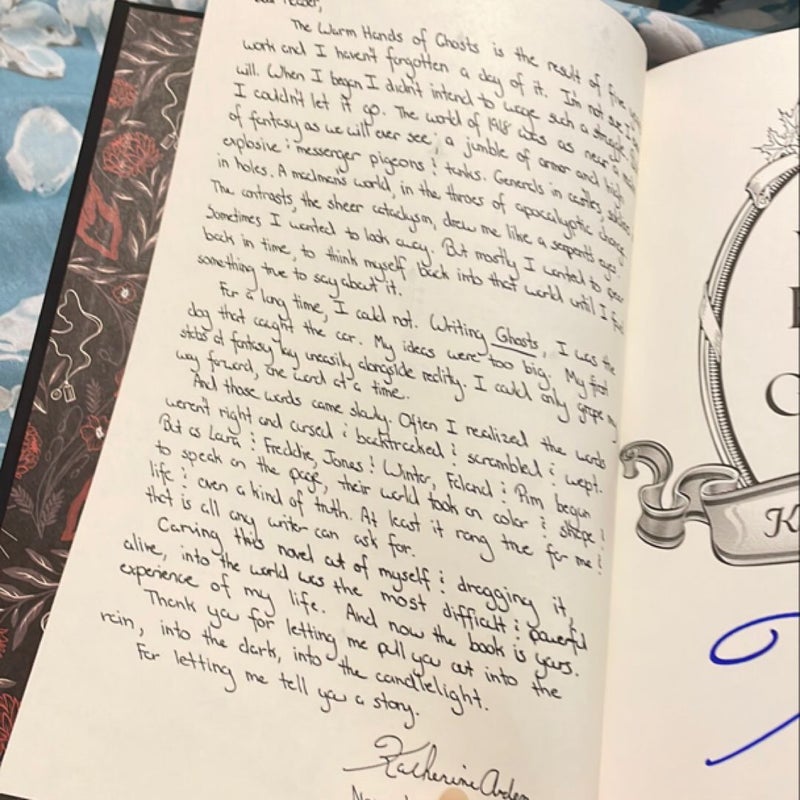 Dear Reader,
The Warm Hands of Ghosts is the result of five
work and I haven't forgotten a day of it. I'm not sure I
will. When I began I didn't intend to wage such a struggle.
I couldn't let it go. The world of 1918 was as near a
of fantasy as we will ever see; a jumble of armor and high
explosive & messenger pigeons & tanks. Generals in castles,
in holes. A madman's world, in the throes of apocalyptic change
The contrasts, the sheer cataclysm, drew me like a serpent's eyes.
Sometimes I wanted to look away. But mostly I wanted to
back in time, to think myself back into that world until I
something true to say about it.
For a long time, I could not. Writing Ghosts, I was the
dog that caught the car. My ideas were too big. My first
stabs at fantasy lay uneasily alongside reality. I could only grope my
way forward, one word at a time.
And those words came slowly. Often I realized the words
weren't right and cursed & backtracked & scrambled & wept.
But as Laura & Freddie, Jones & Winter, Faland & Pim began
to speak on the page, their world took on color & shape &
life & even a kind of truth. At least it rang true for me &
that is all any writer can ask for.
Carving this novel out of myself & dragging it,
alive, into the world was the most difficult & powerful
experience of my life. And now the book is yours.
Thank you for letting me pull you out into the
rain, into the dark, into the candlelight.
For letting me tell you a story.
Katherine Arden
K